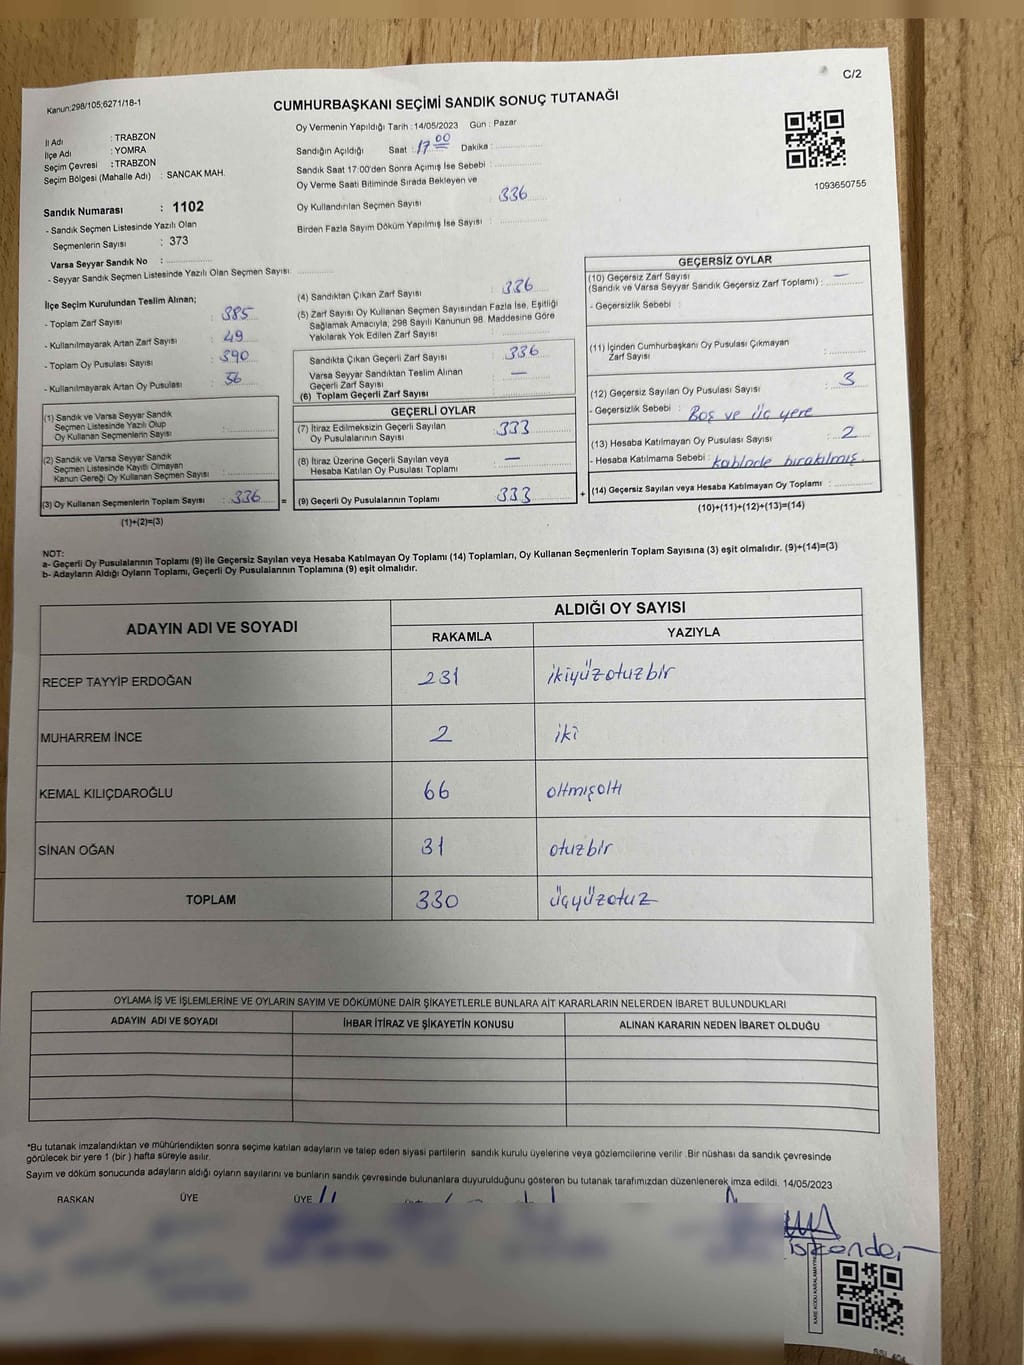 C/2
Kanun;298/105;6271/18-1
CUMHURBAŞKANI SEÇİMİ SANDIK SONUÇ TUTANAĞI
İl Adı : TRABZON
İlçe Adı : YOMRA
Seçim Çevresi : TRABZON
Seçim Bölgesi (Mahalle Adı) : SANCAK MAH.
Sandık Numarası : 1102
- Sandık Seçmen Listesinde Yazılı Olan
Seçmenlerin Sayısı : 373
Varsa Seyyar Sandık No :
- Seyyar Sandık Seçmen Listesinde Yazılı Olan Seçmen Sayısı:
Oy Vermenin Yapıldığı Tarih : 14/05/2023 Gün : Pazar
Sandığın Açıldığı Saat : 17 00 Dakika :
Sandık Saat 17:00'den Sonra Açımış İse Sebebi :
Oy Verme Saati Bitiminde Sırada Bekleyen ve
Oy Kullandırılan Seçmen Sayısı : 336
Birden Fazla Sayım Döküm Yapılmış İse Sayısı :
1093650755
İlçe Seçim Kurulundan Teslim Alınan;
- Toplam Zarf Sayısı : 385
- Kullanılmayarak Artan Zarf Sayısı : 49
- Toplam Oy Pusulası Sayısı : 390
- Kullanılmayarak Artan Oy Pusulası : 56
(1) Sandık ve Varsa Seyyar Sandık
Seçmen Listesinde Yazılı Olup
Oy Kullanan Seçmenlerin Sayısı :
(2) Sandık ve Varsa Seyyar Sandık
Seçmen Listesinde Kayıtlı Olmayan
Kanun Gereği Oy Kullanan Seçmen Sayısı :
(3) Oy Kullanan Seçmenlerin Toplam Sayısı : 336 =
(1)+(2)=(3)
(4) Sandıktan Çıkan Zarf Sayısı : 336
(5) Zarf Sayısı Oy Kullanan Seçmen Sayısından Fazla İse, Eşitliği
Sağlamak Amacıyla, 298 Sayılı Kanunun 98. Maddesine Göre
Yakılarak Yok Edilen Zarf Sayısı :
Sandıkta Çıkan Geçerli Zarf Sayısı : 336
Varsa Seyyar Sandıktan Teslim Alınan
Geçerli Zarf Sayısı : —
(6) Toplam Geçerli Zarf Sayısı :
GEÇERLİ OYLAR
(7) İtiraz Edilmeksizin Geçerli Sayılan
Oy Pusulalarının Sayısı : 333
(8) İtiraz Üzerine Geçerli Sayılan veya
Hesaba Katılan Oy Pusulası Toplamı : —
(9) Geçerli Oy Pusulalarının Toplamı : 333 +
GEÇERSİZ OYLAR
(10) Geçersiz Zarf Sayısı
(Sandık ve Varsa Seyyar Sandık Geçersiz Zarf Toplamı) : —
- Geçersizlik Sebebi :
(11) İçinden Cumhurbaşkanı Oy Pusulası Çıkmayan
Zarf Sayısı :
(12) Geçersiz Sayılan Oy Pusulası Sayısı : 3
- Geçersizlik Sebebi : Boş ve üç yere
(13) Hesaba Katılmayan Oy Pusulası Sayısı : 2
- Hesaba Katılmama Sebebi : kabinde bırakılmış.
(14) Geçersiz Sayılan veya Hesaba Katılmayan Oy Toplamı :
(10)+(11)+(12)+(13)=(14)
NOT:
a- Geçerli Oy Pusulalarının Toplamı (9) ile Geçersiz Sayılan veya Hesaba Katılmayan Oy Toplamı (14) Toplamları, Oy Kullanan Seçmenlerin Toplam Sayısına (3) eşit olmalıdır. (9)+(14)=(3)
b- Adayların Aldığı Oyların Toplamı, Geçerli Oy Pusulalarının Toplamına (9) eşit olmalıdır.
ADAYIN ADI VE SOYADI
ALDIĞI OY SAYISI
RAKAMLA YAZIYLA
RECEP TAYYİP ERDOĞAN 231 ikiyüzotuzbir
MUHARREM İNCE 2 iki
KEMAL KILIÇDAROĞLU 66 altmışaltı
SİNAN OĞAN 31 otuzbir
TOPLAM 330 üçyüzotuz
OYLAMA İŞ VE İŞLEMLERİNE VE OYLARIN SAYIM VE DÖKÜMÜNE DAİR ŞİKAYETLERLE BUNLARA AİT KARARLARIN NELERDEN İBARET BULUNDUKLARI
ADAYIN ADI VE SOYADI İHBAR İTİRAZ VE ŞİKAYETİN KONUSU ALINAN KARARIN NEDEN İBARET OLDUĞU
*Bu tutanak imzalandıktan ve mühürlendikten sonra seçime katılan adayların ve talep eden siyasi partilerin sandık kurulu üyelerine veya gözlemcilerine verilir .Bir nüshası da sandık çevresinde
görülecek bir yere 1 (bir ) hafta süreyle asılır.
Sayım ve döküm sonucunda adayların aldığı oyların sayılarını ve bunların sandık çevresinde bulunanlara duyurulduğunu gösteren bu tutanak tarafımızdan düzenlenerek imza edildi. 14/05/2023
BAŞKAN ÜYE ÜYE
iskender